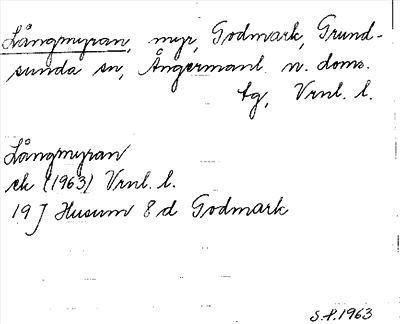 Långmyran, myr, Godmark, Grund-
sunda sn, Ångermanl. n. doms.
tg, Vrnl. l.
Långmyran
ek (1963) Vrnl. l.
19 J Husum 8 d Godmark
S.P. 1963